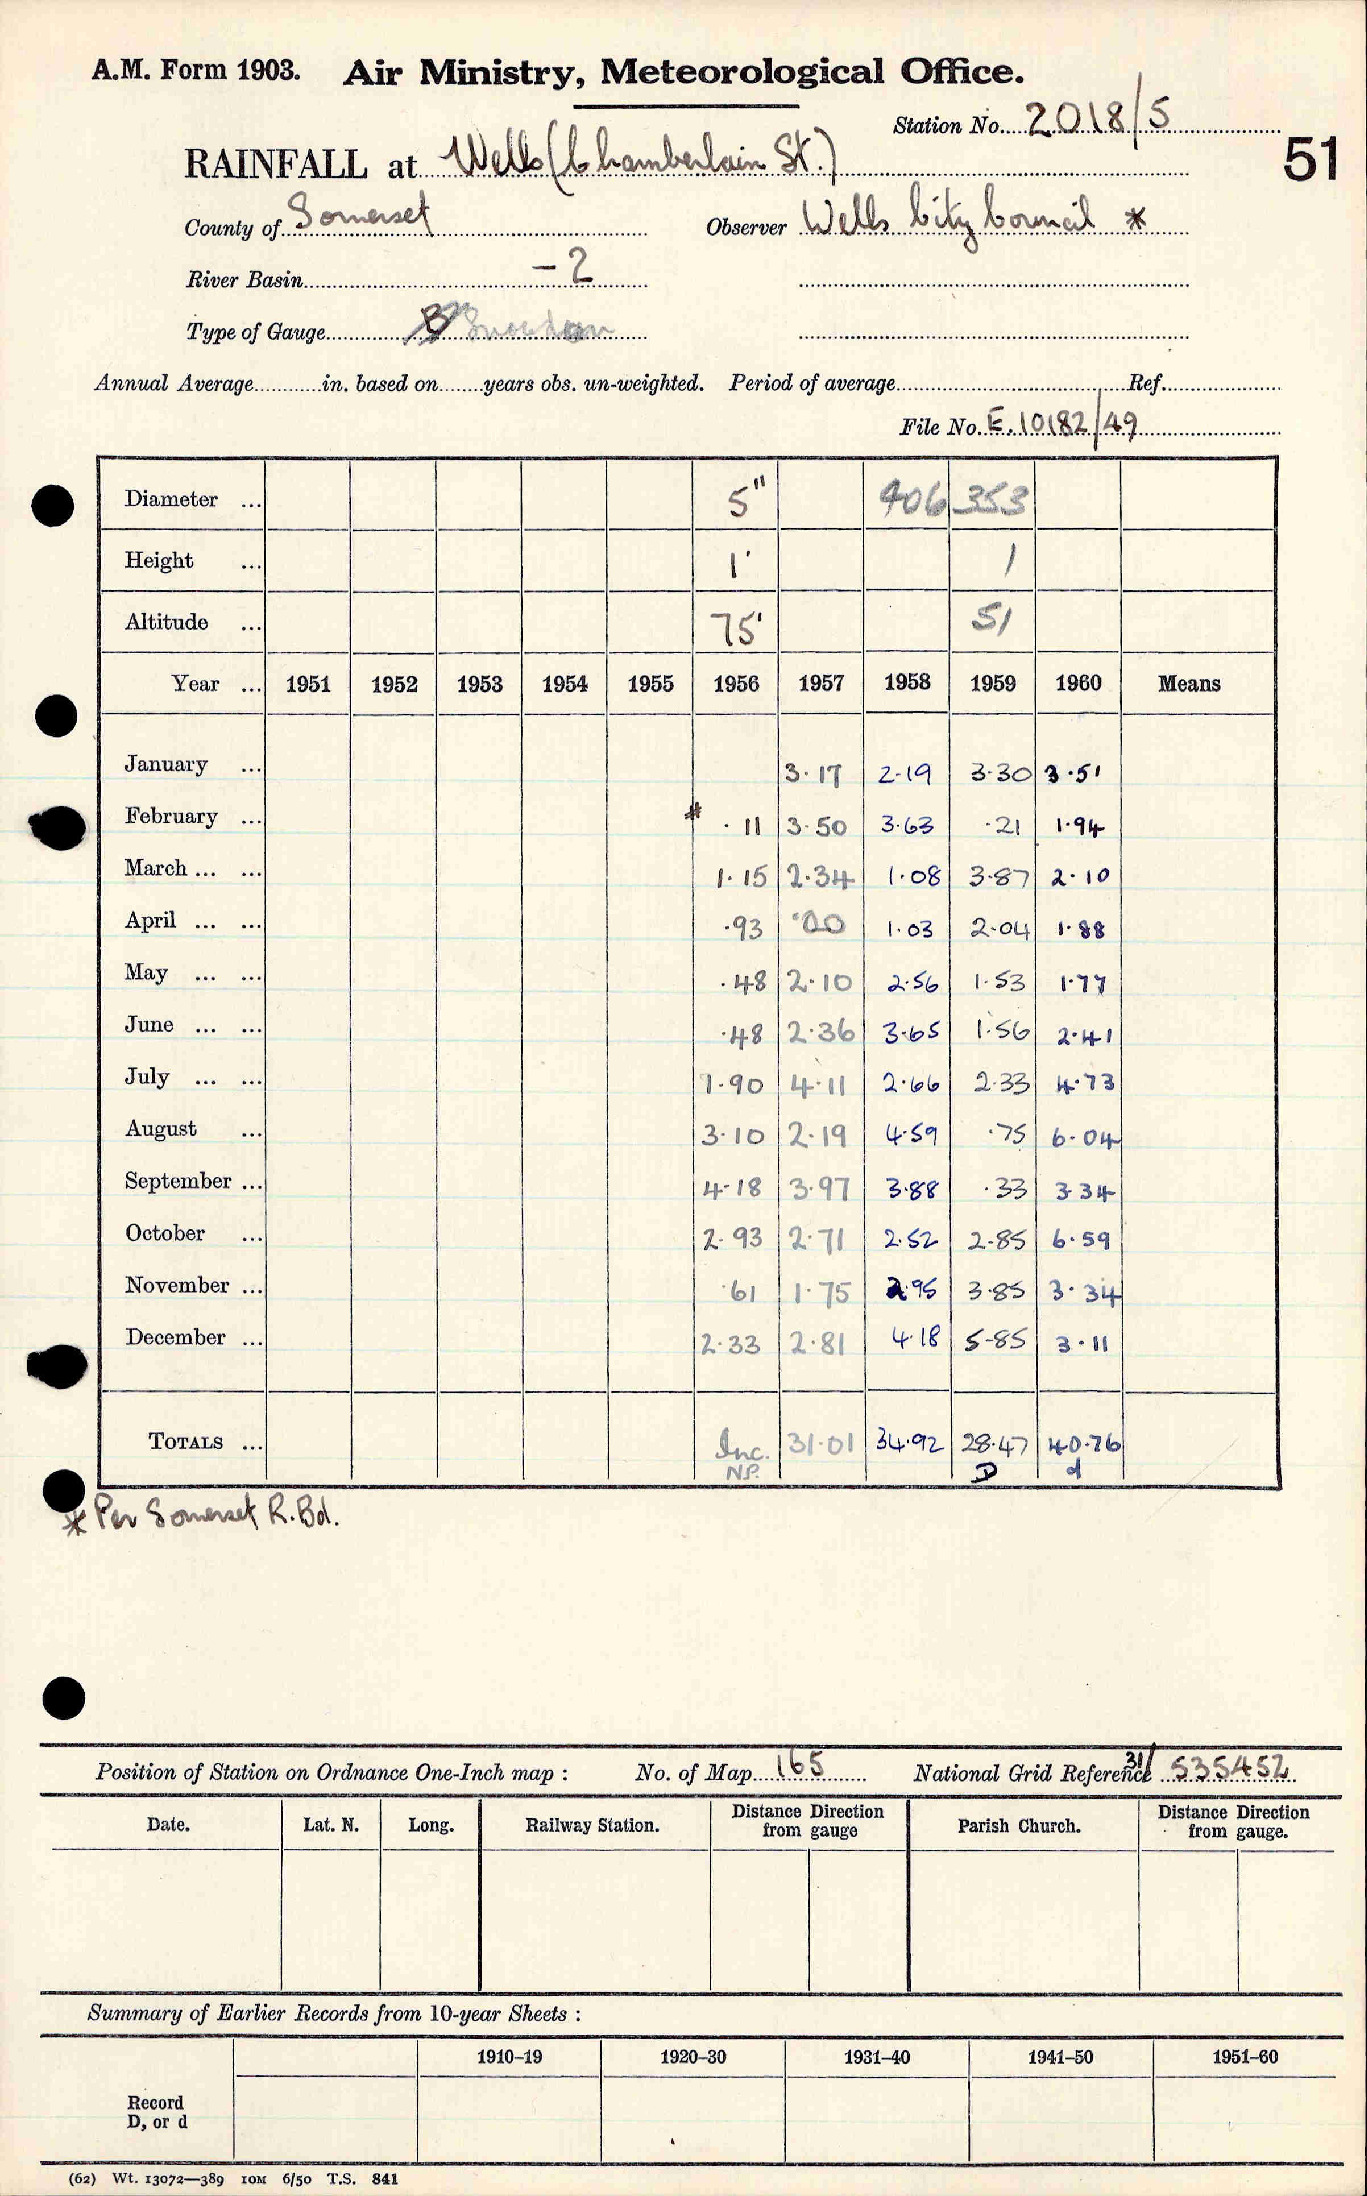 A.M. Form 1903. Air Ministry, Meteorological Office.
Station No. 2018/5
51
RAINFALL at Wells (Chamberlain St.)
County of Somerset Observer Wells City Council *
River Basin -2
Type of Gauge B Snowdon
Annual Average in. based on years obs. un-weighted. Period of average Ref.
File No. E.10182/49
Diameter ... 5" 406 353
Height ... 1' 1
Altitude ... 75' 51
Year ... 1951 1952 1953 1954 1955 1956 1957 1958 1959 1960 Means
January ... 3.17 2.19 3.30 3.51
February ... * .11 3.50 3.63 .21 1.94
March ... ... 1.15 2.34 1.08 3.87 2.10
April ... ... .93 .00 1.03 2.04 1.88
May ... ... .48 2.10 2.56 1.53 1.77
June ... ... .48 2.36 3.65 1.56 2.41
July ... ... 1.90 4.11 2.66 2.33 4.73
August ... 3.10 2.19 4.59 .75 6.04
September ... 4.18 3.97 3.88 .33 3.34
October ... 2.93 2.71 2.52 2.85 6.59
November ... .61 1.75 2.95 3.85 3.34
December ... 2.33 2.81 4.18 5.85 3.11
TOTALS ... Inc. 31.01 34.92 28.47 40.76
N.P. D d
* Per Somerset R.Bd.
Position of Station on Ordnance One-Inch map : No. of Map 165 National Grid Reference 31/535452
Date. Lat. N. Long. Railway Station. Distance Direction from gauge Parish Church. Distance Direction from gauge.
Summary of Earlier Records from 10-year Sheets :
1910–19 1920–30 1931–40 1941–50 1951–60
Record
D, or d
(62) Wt. 13072—389 10M 6/50 T.S. 841